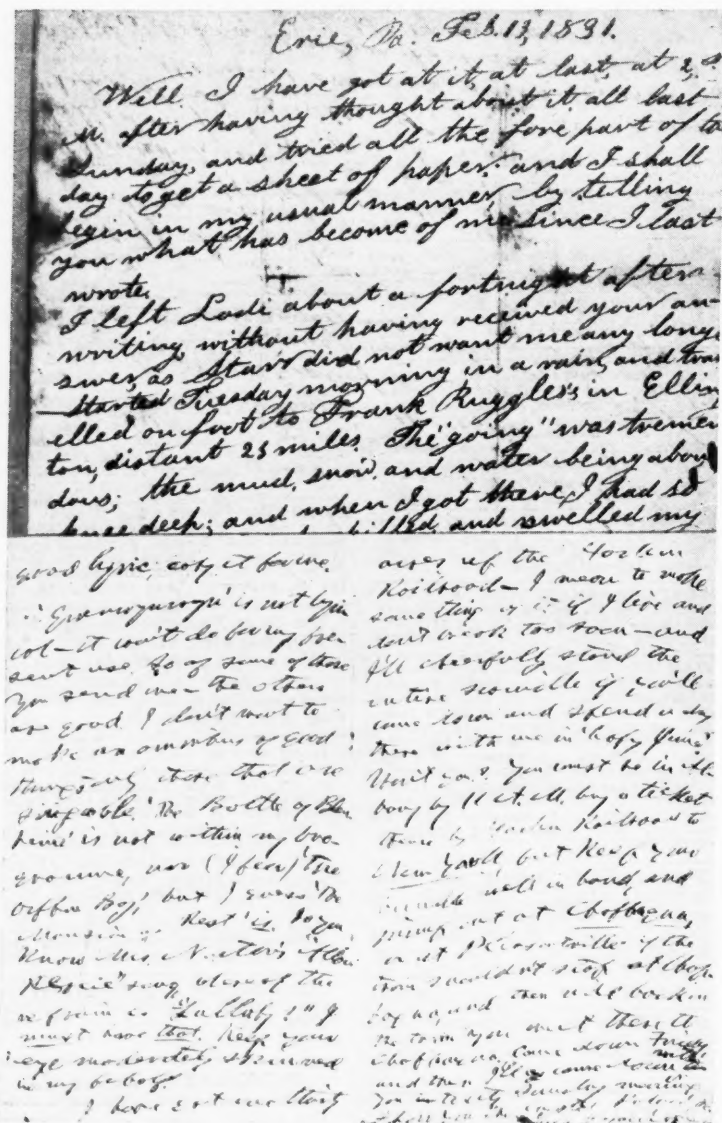 Erie, Pa. Feb. 13, 1831.
Well I have got at it, at last, at 2, P.
M. after having thought about it all last
Sunday, and tried all the fore part of to
day to get a sheet of paper: and I shall
begin in my usual manner, by telling
you what has become of me since I last
wrote.
I left Lodi about a fortnight after
writing without having received your an-
swer, as Starr did not want me any longe
Started Tuesday morning in a rain, and trav
elled on foot to Frank Ruggles's in Elling
ton, distant 25 miles. The "going" was tremen
dous; the mud, snow, and water being about
knee deep; and when I got there, I had so
chilled and swelled my
good lyric; copy it for me.
is not
cot—it won't do for my pre
sent use. So of some of those
you send me—the others
are good. I don't want to
make an omnibus of good
things; only those that are
singable. 'The Battle of Blen
heim' is not within my pro-
gramme, nor (I fear) 'The
Boy,' but I guess 'The
is. Do you
Know Mrs. Norton's
song whereof the
refrain is "Lullaby?" I
must have that. Keep your
eye moderately skinned
in my behoof.
I have got one thing
acres up the Harlem
Railroad—I mean to make
something of it if I live and
don't break too soon—and
I'll cheerfully stand the
entire swindle if you'll
come down and spend a day
there with me in 'leafy June'
Won't you? You must be in Al
bany by 11 A.M. buy a ticket
there by Harlem Railroad to
New York but keep your
well in hand, and
jump out at Chappaqua,
or at Pleasantville if the
train shouldn't stop at Chap
paqua, and then walk back